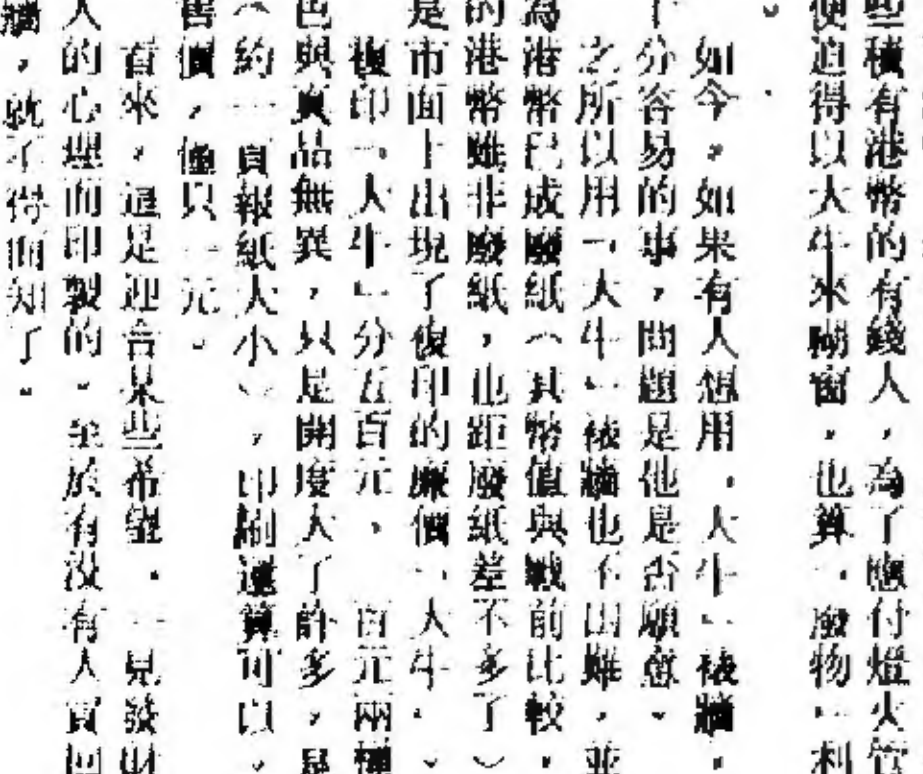 些積有港幣的有錢人，為了應付燈火管
便迫得以大牛來糊窗，也算「廢物」利
。
如今，如果有人想用「大牛」裱牆，
十分容易的事，問題是他是否願意。
之所以用「大牛」裱牆也不困難，並
為港幣已成廢紙（其幣值與戰前比較，
的港幣雖非廢紙，也距廢紙差不多了）
是市面上出現了復印的廉價「大牛」。
復印「大牛」分五百元、一百元兩種
色與真品無異，只是開度大了許多，是
（約一頁報紙大小），印刷還算可以。
售價，僅只一元。
看來，這是迎合某些希望「一見發財
人的心理而印製的。至於有沒有人買回
牆，就不得而知了。